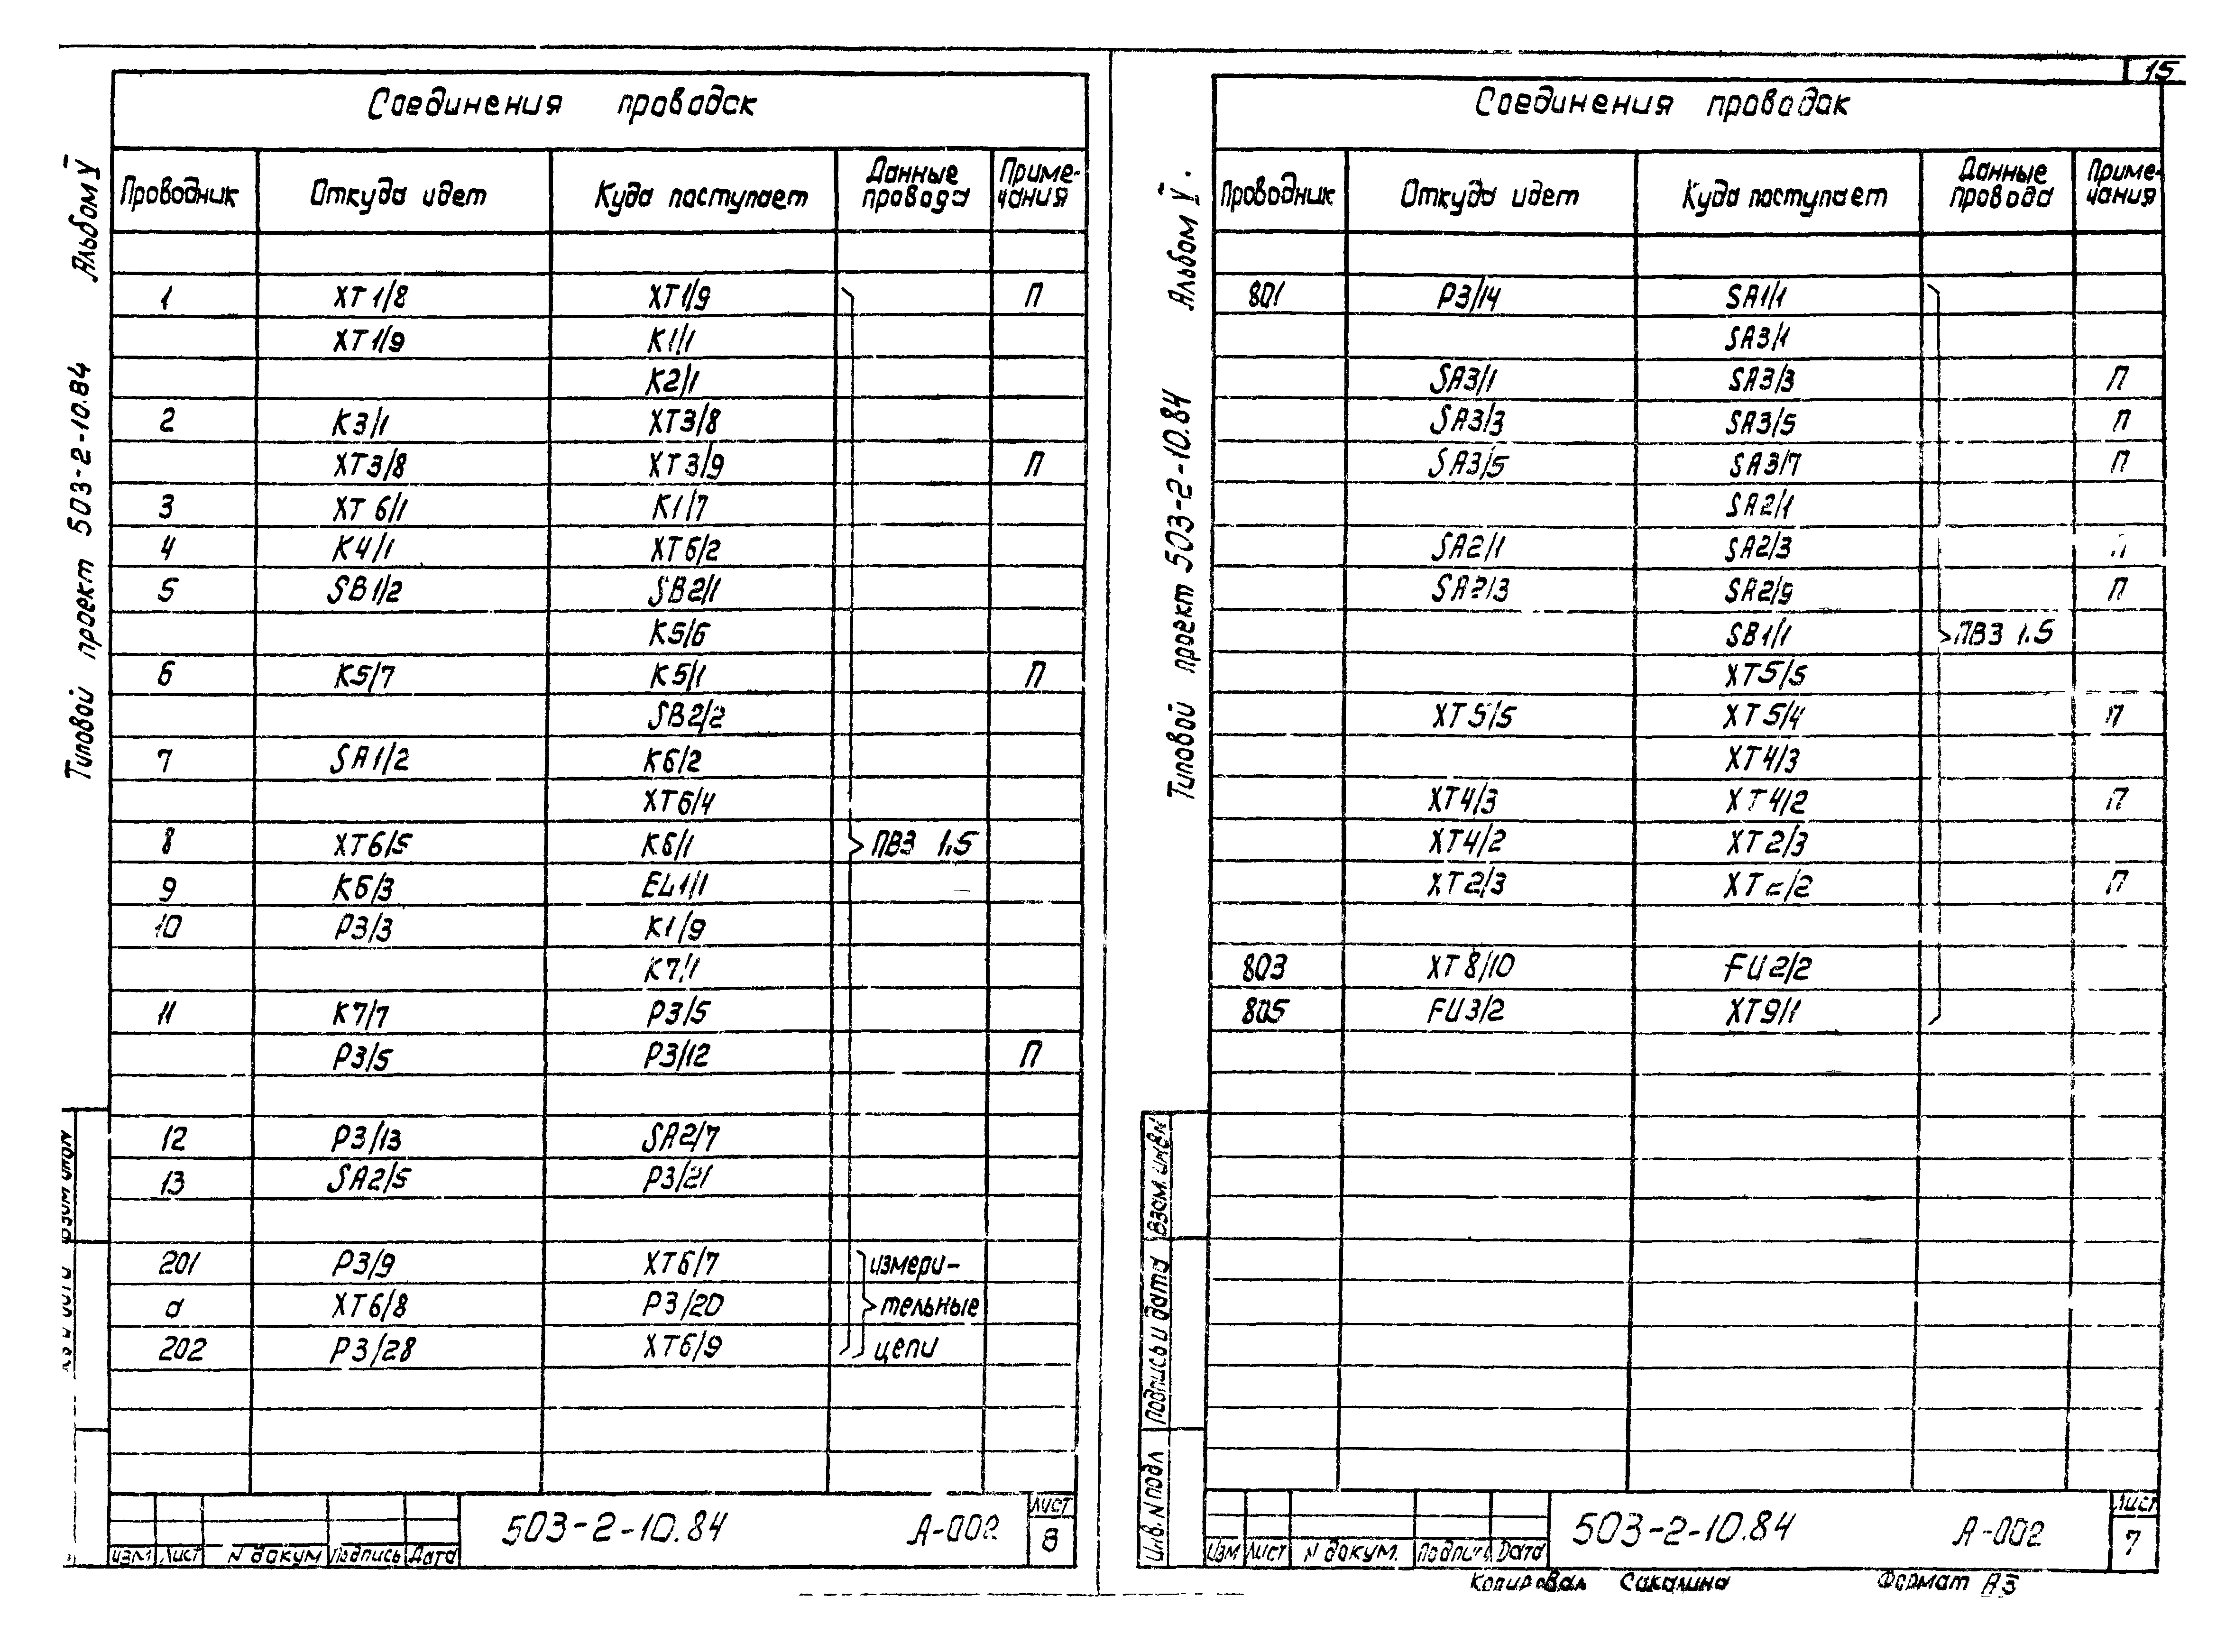 15
Альбом V
Типовой проект 503-2-10.84
Соединения проводок
Проводник Откуда идет Куда поступает Данные провода Приме-чания
1 XT1/8 XT1/9 П
XT1/9 K1/1
K2/1
2 K3/1 XT3/8
XT3/8 XT3/9 П
3 XT6/1 K1/7
4 K4/1 XT6/2
5 SB1/2 SB2/1
K5/6
6 K5/7 K5/1 П
SB2/2
7 SA1/2 K6/2
XT6/4
8 XT6/5 K6/1 ПВ3 1.5
9 K6/3 EL1/1
10 P3/3 K1/9
K7/1
11 K7/7 P3/5
P3/5 P3/12 П
12 P3/13 SA2/7
13 SA2/5 P3/21
201 P3/9 XT6/7 измери-
d XT6/8 P3/20 тельные
202 P3/28 XT6/9 цепи
Изм Лист N докум Подпись Дата
503-2-10.84 А-002
Лист
8
Альбом V.
Типовой проект 503-2-10.84
Соединения проводок
Проводник Откуда идет Куда поступает Данные провода Приме-чания
801 P3/14 SA1/1
SA3/1
SA3/1 SA3/3 П
SA3/3 SA3/5 П
SA3/5 SA3/7 П
SA2/1
SA2/1 SA2/3 П
SA2/3 SA2/9 П
SB1/1 ПВ3 1.5
XT5/5
XT5/5 XT5/4 П
XT4/3
XT4/3 XT4/2 П
XT4/2 XT2/3
XT2/3 П
803 XT8/10 FU2/2
805 FU3/2 XT9/1
Инв. N подл Подпись и дата Взам. инв N
Изм Лист N докум. Подпись Дата
503-2-10.84 А-002
Лист
7
Копировал Сакалина Формат А3